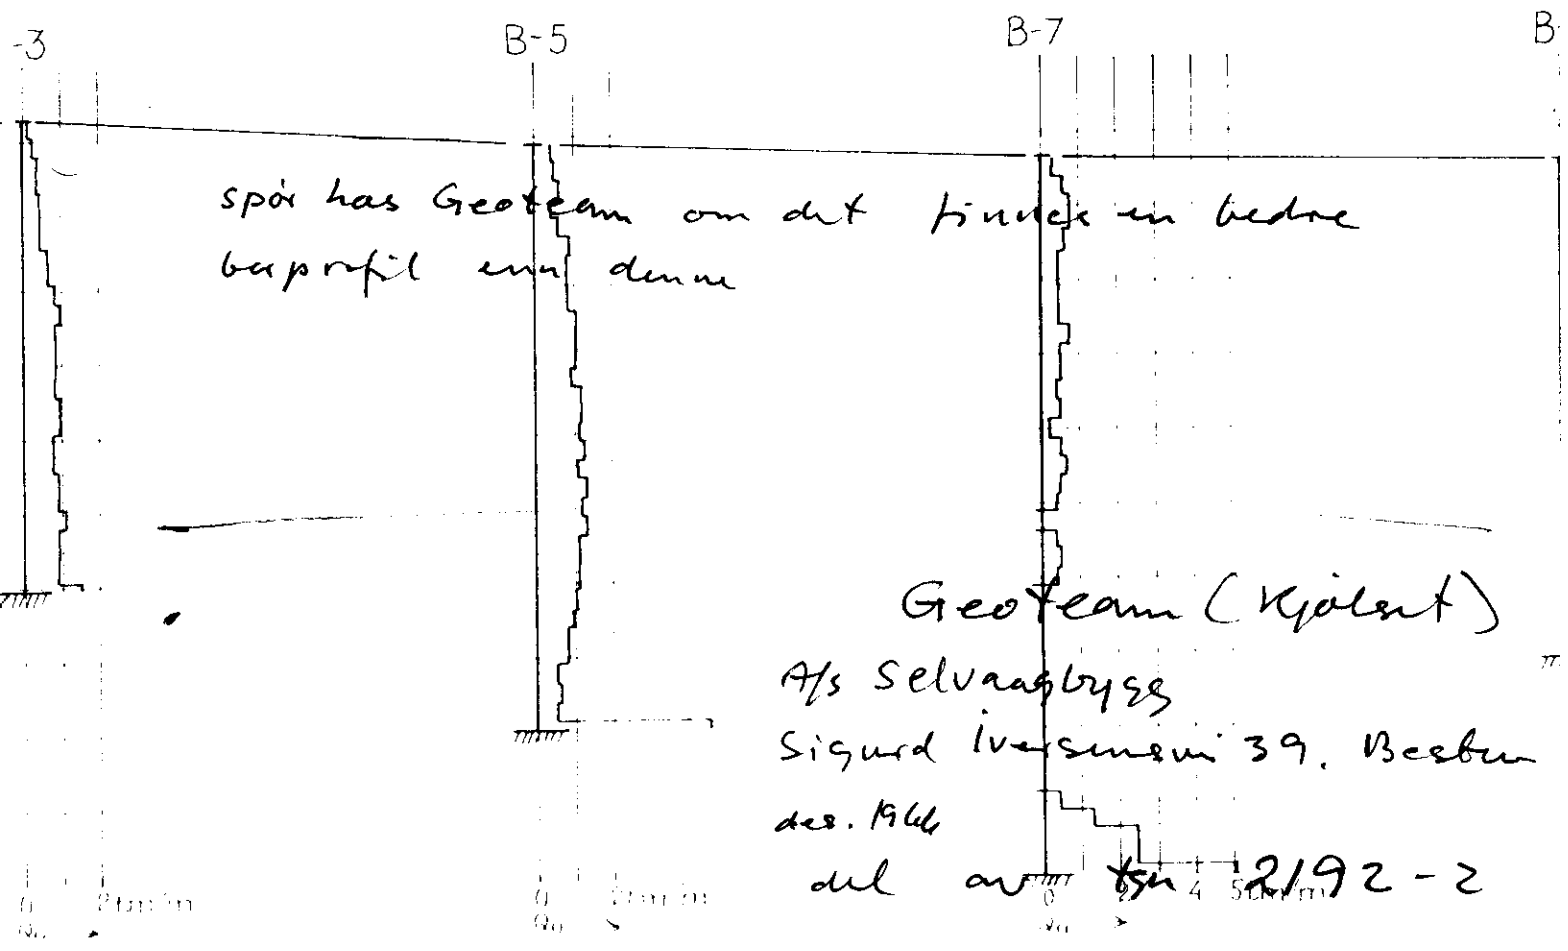 -3 B-5 B-7 B-
spør hos Geoteam om det finnes en bedre
borprofil enn denne
Geoteam (Kjølset)
A/s Selvaagbygg
Sigurd Iversensvei 39. Bestun
des. 1966
del av tgn 2192-2
0 2tm/m 0 2tm/m 0 2 4 5tm/m
Q₀ Q₀ Q₀